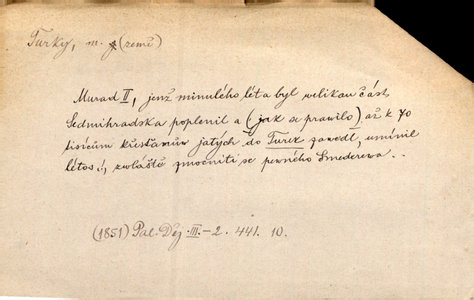 Turky, m. (zemi)
Murad II, jenž minulého léta byl velikau část
Sedmihradska poplenil a (jak a prawilo) až k 70
tisícům křesťanům jatých do Turek zawedl, umínil
létos!, zwláště zmocniti se pewného Smederewa..
(1851) Pal. Děj. III.-2. 441. 10.